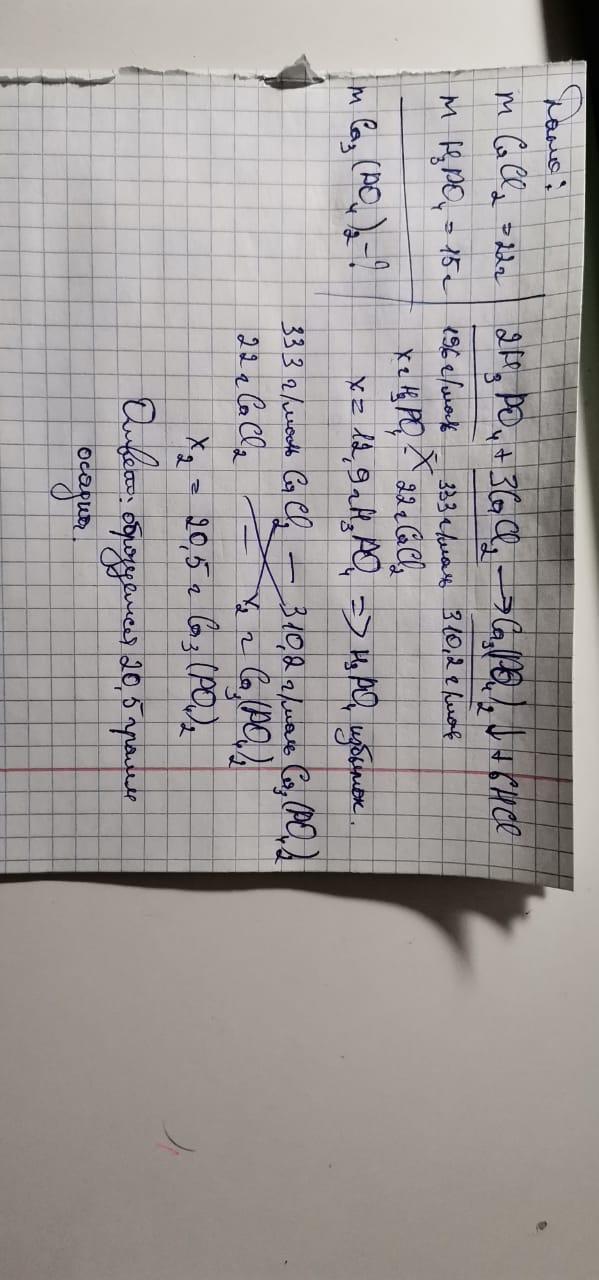 Дано:
m CaCl₂ = 22г
m H₃PO₄ = 15г
m Ca₃(PO₄)₂ - ?
2H₃PO₄ + 3CaCl₂ → Ca₃(PO₄)₂↓ + 6HCl
196 г/моль 333 г/моль 310,2 г/моль
x г H₃PO₄ - 22 г CaCl₂
x = 12,9 г H₃PO₄ => H₃PO₄ избыток.
333 г/моль CaCl₂ — 310,2 г/моль Ca₃(PO₄)₂
22 г CaCl₂ — x₂ г Ca₃(PO₄)₂
x₂ = 20,5 г Ca₃(PO₄)₂
Ответ: образуется 20,5 грамм
осадка.